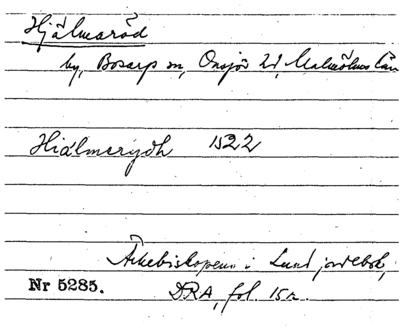 Hjälmaröd
by, Bosarp sn, Onsjö hd, Malmöhus län
Hiälmerydh 1522
Ärkebiskopens i Lund jordebok,
Nr 5285. DRA, fol. 15r.